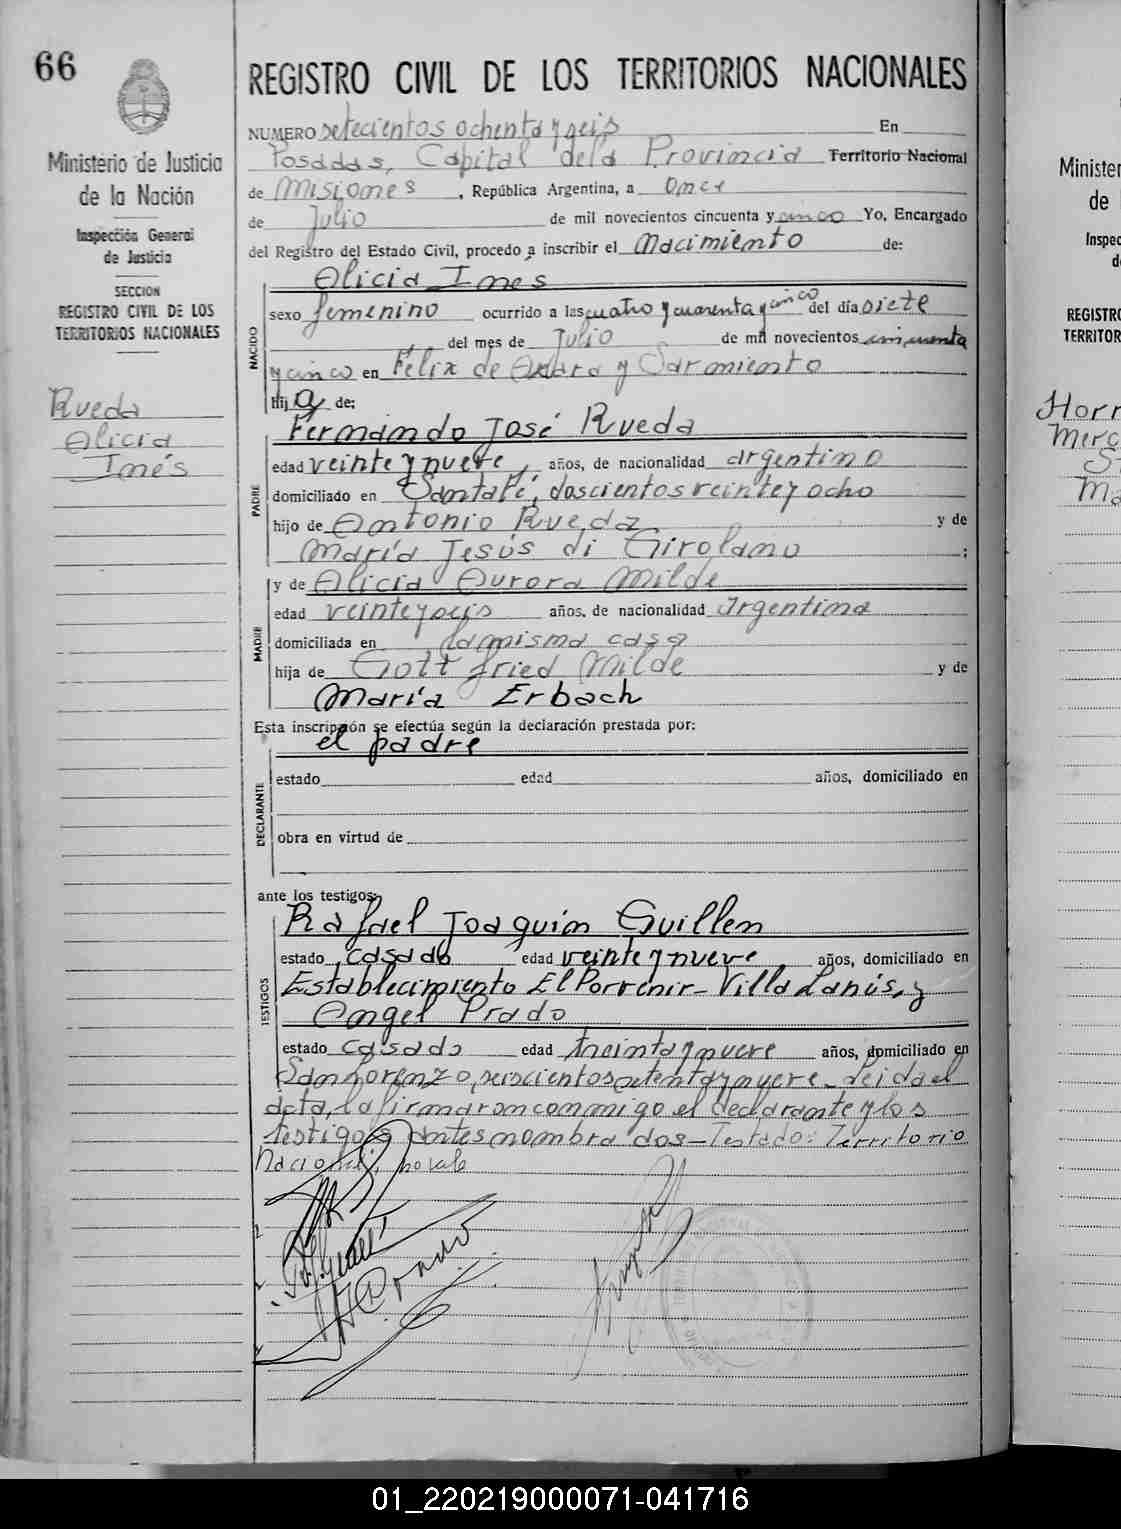 66
Ministerio de Justicia
de la Nación
Inspección General
de Justicia
SECCION
REGISTRO CIVIL DE LOS
TERRITORIOS NACIONALES
Rueda
Alicia
Inés
REGISTRO CIVIL DE LOS TERRITORIOS NACIONALES
NUMERO setecientos ochenta y seis En
Posadas, Capital dela Provincia Territorio Nacional
de Misiones, República Argentina, a once
de Julio de mil novecientos cincuenta y cinco Yo, Encargado
del Registro del Estado Civil, procedo a inscribir el nacimiento de:
Alicia Ines
NACIDO
sexo femenino ocurrido a las cuatro y cuarenta y cinco del día siete
del mes de Julio de mil novecientos cincuenta
y cinco en Félix de Azara y Sarmiento
hija de:
Fernando José Rueda
PADRE
edad veinte y nueve, años, de nacionalidad argentino
domiciliado en Santa Fé, doscientos veinte y ocho
hijo de Antonio Rueda y de
María Jesús di Girolamo ;
y de Alicia Aurora Milde
MADRE
edad veinte y seis años, de nacionalidad argentina
domiciliada en la misma casa
hija de Gottfried Milde y de
María Erbach
Esta inscripción se efectúa según la declaración prestada por:
el padre
DECLARANTE
estado edad años, domiciliado en
obra en virtud de
ante los testigos:
Rafael Joaquin Guillen
TESTIGOS
estado casado edad veinte y nueve, años, domiciliado en
Establecimiento El Porvenir - Villa Lanús, y
Angel Prado
estado casado edad treinta y nueve años, domiciliado en
San Lorenzo, seiscientos setenta y nueve - Leida el
acta, la firmaron conmigo el declarante y los
testigos antes nombrados - Testado: Territorio
Nacional; no vale
Minister
de
Inspec
d
REGISTRO
TERRITOR
Horn
Merc
Ma
01_220219000071-041716